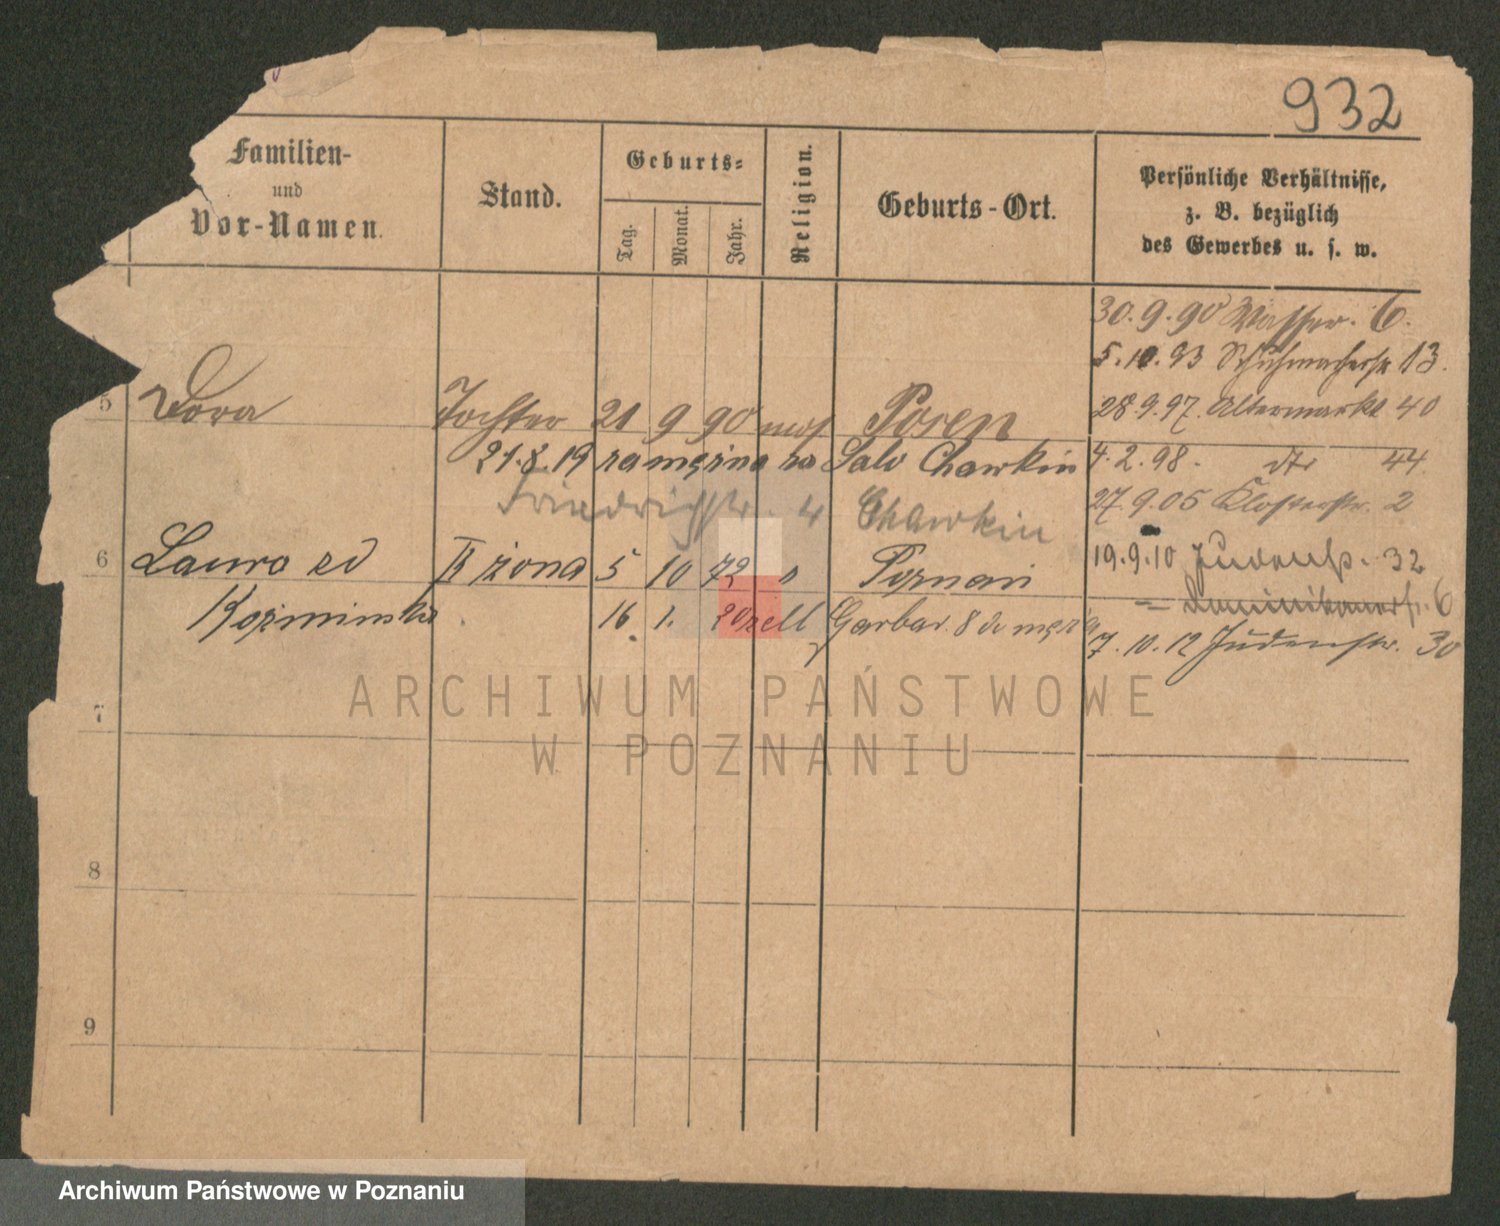 932
Familien-
und
Vor-Namen.
Stand.
Geburts-
Tag.
Monat.
Jahr.
Religion.
Geburts-Ort.
Persönliche Verhältnisse,
z. B. bezüglich
des Gewerbes u. s. w.
30.9.90 Wasserstr. 6.
5.10.93 Schuhmacherstr 13.
5 Dora Tochter 21 9 90 mos Posen 28.9.97. Altermarkt 40
21.8.19 zamężna za Salo Chawkin 4.2.98. dto 44.
Friedrichstr. 4 Chawkin 27.9.05 Klosterstr. 2
6 Laura zd II żona 5 10 72 Poznań 19.9.10 Judenstr. 32
Koźmińska 16. 1. 20 zell Garbar. 8 do męża = Dominikanerstr. 6
7.10.12 Judenstr. 30
7
8
9
ARCHIWUM PAŃSTWOWE
W POZNANIU
Archiwum Państwowe w Poznaniu